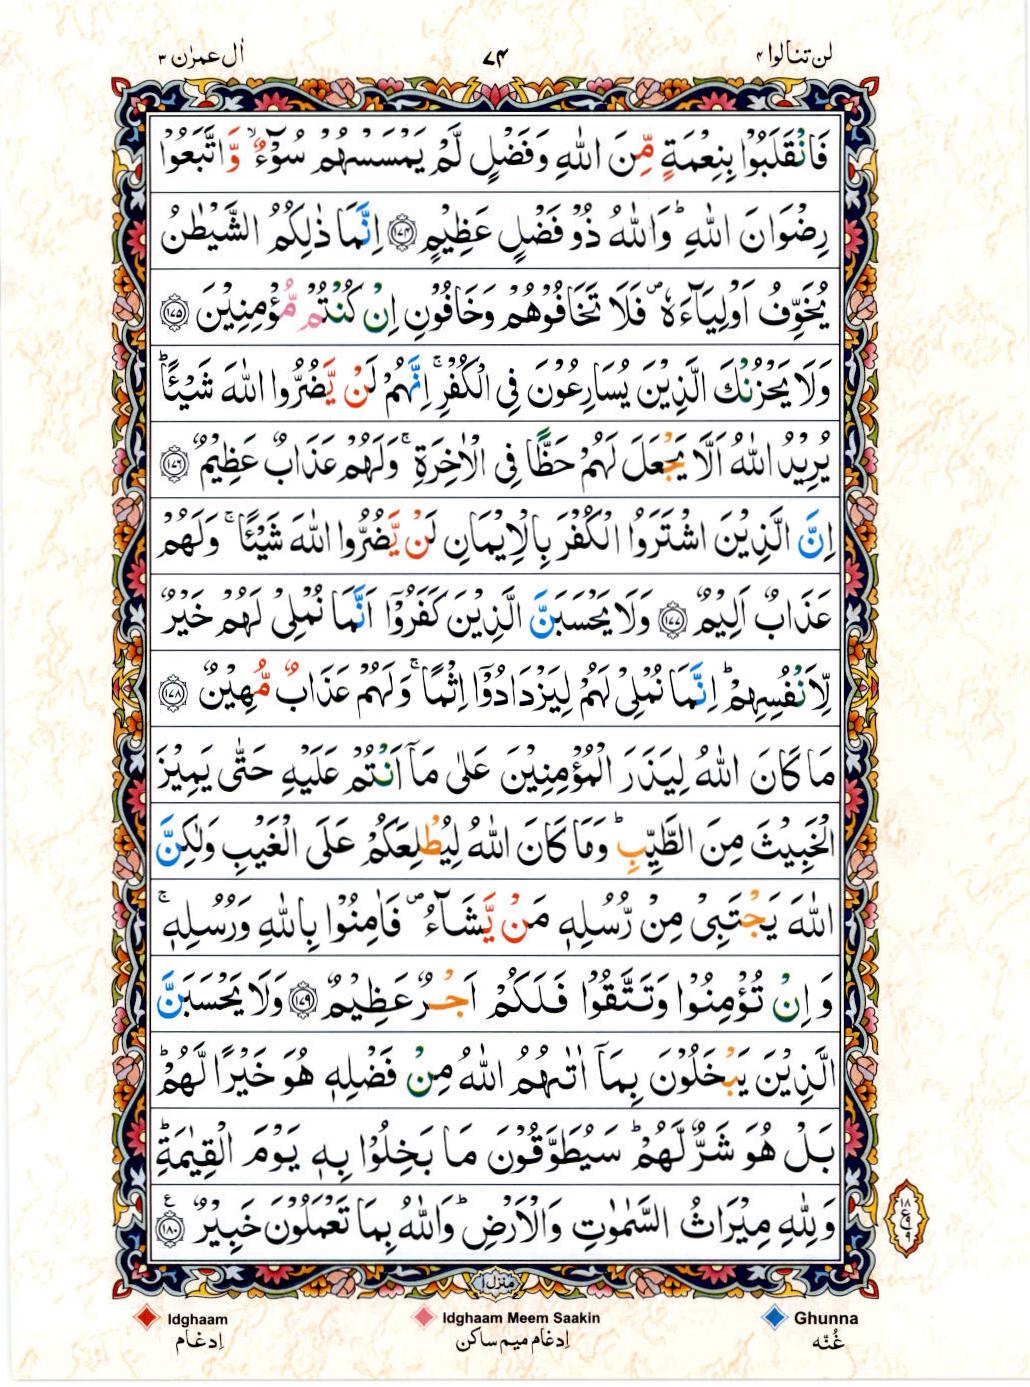 لن تنالوا ۴
۷۴
اٰل عمرٰن ۳
فَانْقَلَبُوْا بِنِعْمَةٍ مِّنَ اللّٰهِ وَفَضْلٍ لَّمْ يَمْسَسْهُمْ سُوْٓءٌ ۙ وَّاتَّبَعُوْا
رِضْوَانَ اللّٰهِ ؕ وَاللّٰهُ ذُوْ فَضْلٍ عَظِيْمٍ ﴿۱۷۴﴾ اِنَّمَا ذٰلِكُمُ الشَّيْطٰنُ
يُخَوِّفُ اَوْلِيَآءَهٗ ۪ فَلَا تَخَافُوْهُمْ وَخَافُوْنِ اِنْ كُنْتُمْ مُّؤْمِنِيْنَ ﴿۱۷۵﴾
وَلَا يَحْزُنْكَ الَّذِيْنَ يُسَارِعُوْنَ فِى الْكُفْرِ ۚ اِنَّهُمْ لَنْ يَّضُرُّوا اللّٰهَ شَيْـًٔا ؕ
يُرِيْدُ اللّٰهُ اَلَّا يَجْعَلَ لَهُمْ حَظًّا فِى الْاٰخِرَةِ ۚ وَلَهُمْ عَذَابٌ عَظِيْمٌ ﴿۱۷۶﴾
اِنَّ الَّذِيْنَ اشْتَرَوُا الْكُفْرَ بِالْاِيْمَانِ لَنْ يَّضُرُّوا اللّٰهَ شَيْـًٔا ۚ وَلَهُمْ
عَذَابٌ اَلِيْمٌ ﴿۱۷۷﴾ وَلَا يَحْسَبَنَّ الَّذِيْنَ كَفَرُوْۤا اَنَّمَا نُمْلِىْ لَهُمْ خَيْرٌ
لِّاَنْفُسِهِمْ ؕ اِنَّمَا نُمْلِىْ لَهُمْ لِيَزْدَادُوْۤا اِثْمًا ۚ وَلَهُمْ عَذَابٌ مُّهِيْنٌ ﴿۱۷۸﴾
مَا كَانَ اللّٰهُ لِيَذَرَ الْمُؤْمِنِيْنَ عَلٰى مَاۤ اَنْتُمْ عَلَيْهِ حَتّٰى يَمِيْزَ
الْخَبِيْثَ مِنَ الطَّيِّبِ ؕ وَمَا كَانَ اللّٰهُ لِيُطْلِعَكُمْ عَلَى الْغَيْبِ وَلٰكِنَّ
اللّٰهَ يَجْتَبِىْ مِنْ رُّسُلِهٖ مَنْ يَّشَآءُ ۪ فَاٰمِنُوْا بِاللّٰهِ وَرُسُلِهٖ ۚ
وَاِنْ تُؤْمِنُوْا وَتَتَّقُوْا فَلَكُمْ اَجْرٌ عَظِيْمٌ ﴿۱۷۹﴾ وَلَا يَحْسَبَنَّ
الَّذِيْنَ يَبْخَلُوْنَ بِمَاۤ اٰتٰىهُمُ اللّٰهُ مِنْ فَضْلِهٖ هُوَ خَيْرًا لَّهُمْ ؕ
بَلْ هُوَ شَرٌّ لَّهُمْ ؕ سَيُطَوَّقُوْنَ مَا بَخِلُوْا بِهٖ يَوْمَ الْقِيٰمَةِ ؕ
وَلِلّٰهِ مِيْرَاثُ السَّمٰوٰتِ وَالْاَرْضِ ؕ وَاللّٰهُ بِمَا تَعْمَلُوْنَ خَبِيْرٌ ﴿۱۸۰﴾ ع
منزل ۱
Idghaam
Idghaam Meem Saakin
Ghunna
اِدغام
اِدغام ميم ساكن
غُنّه